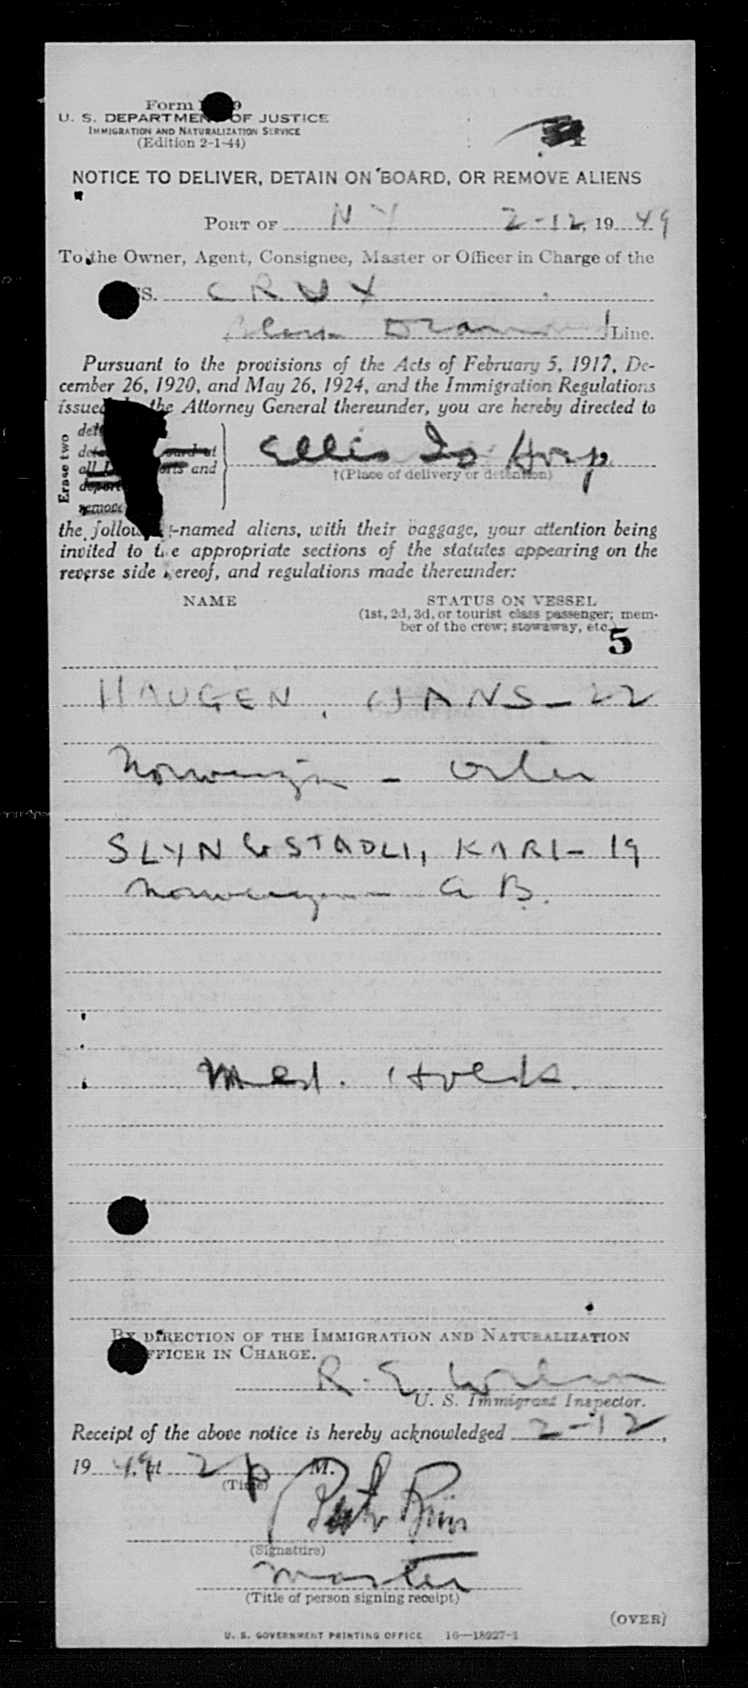 Form 9
U. S. DEPARTMENT OF JUSTICE
IMMIGRATION AND NATURALIZATION SERVICE
(Edition 2-1-44)
NOTICE TO DELIVER, DETAIN ON BOARD, OR REMOVE ALIENS
PORT OF N Y 2-12, 19 49
To the Owner, Agent, Consignee, Master or Officer in Charge of the
SS. CRUX
Line.
Pursuant to the provisions of the Acts of February 5, 1917, De-
cember 26, 1920, and May 26, 1924, and the Immigration Regulations
issued the Attorney General thereunder, you are hereby directed to
Erase two
and
Ellis Is Hosp
†(Place of delivery or detention)
the following-named aliens, with their baggage, your attention being
invited to the appropriate sections of the statutes appearing on the
reverse side hereof, and regulations made thereunder:
NAME STATUS ON VESSEL
(1st, 2d, 3d, or tourist class passenger; mem-
ber of the crew; stowaway, etc.)
5
HAUGEN, HANS - 22
Norwegian - Oiler
SLYNGSTADLI, KARI - 19
Norwegian - A B.
Med. Holds.
BY DIRECTION OF THE IMMIGRATION AND NATURALIZATION
OFFICER IN CHARGE.
R. E.
U. S. Immigrant Inspector.
Receipt of the above notice is hereby acknowledged 2-12,
19 49, at 2 p M.
(Time)
(Signature)
Master
(Title of person signing receipt)
(OVER)
U. S. GOVERNMENT PRINTING OFFICE 16—18927-1